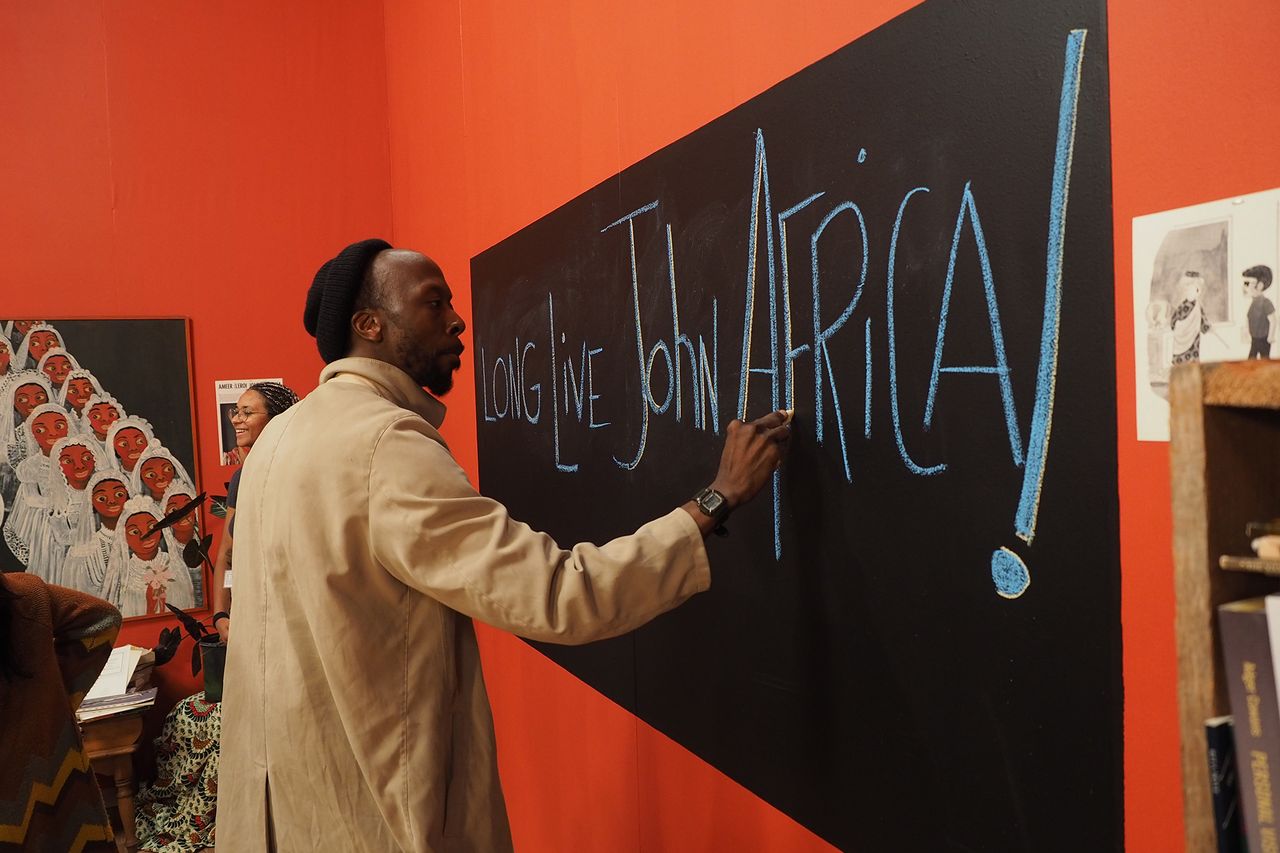 LONG LIVE JohN AFRiCA!
AMEER (LEROI
PERSONAL